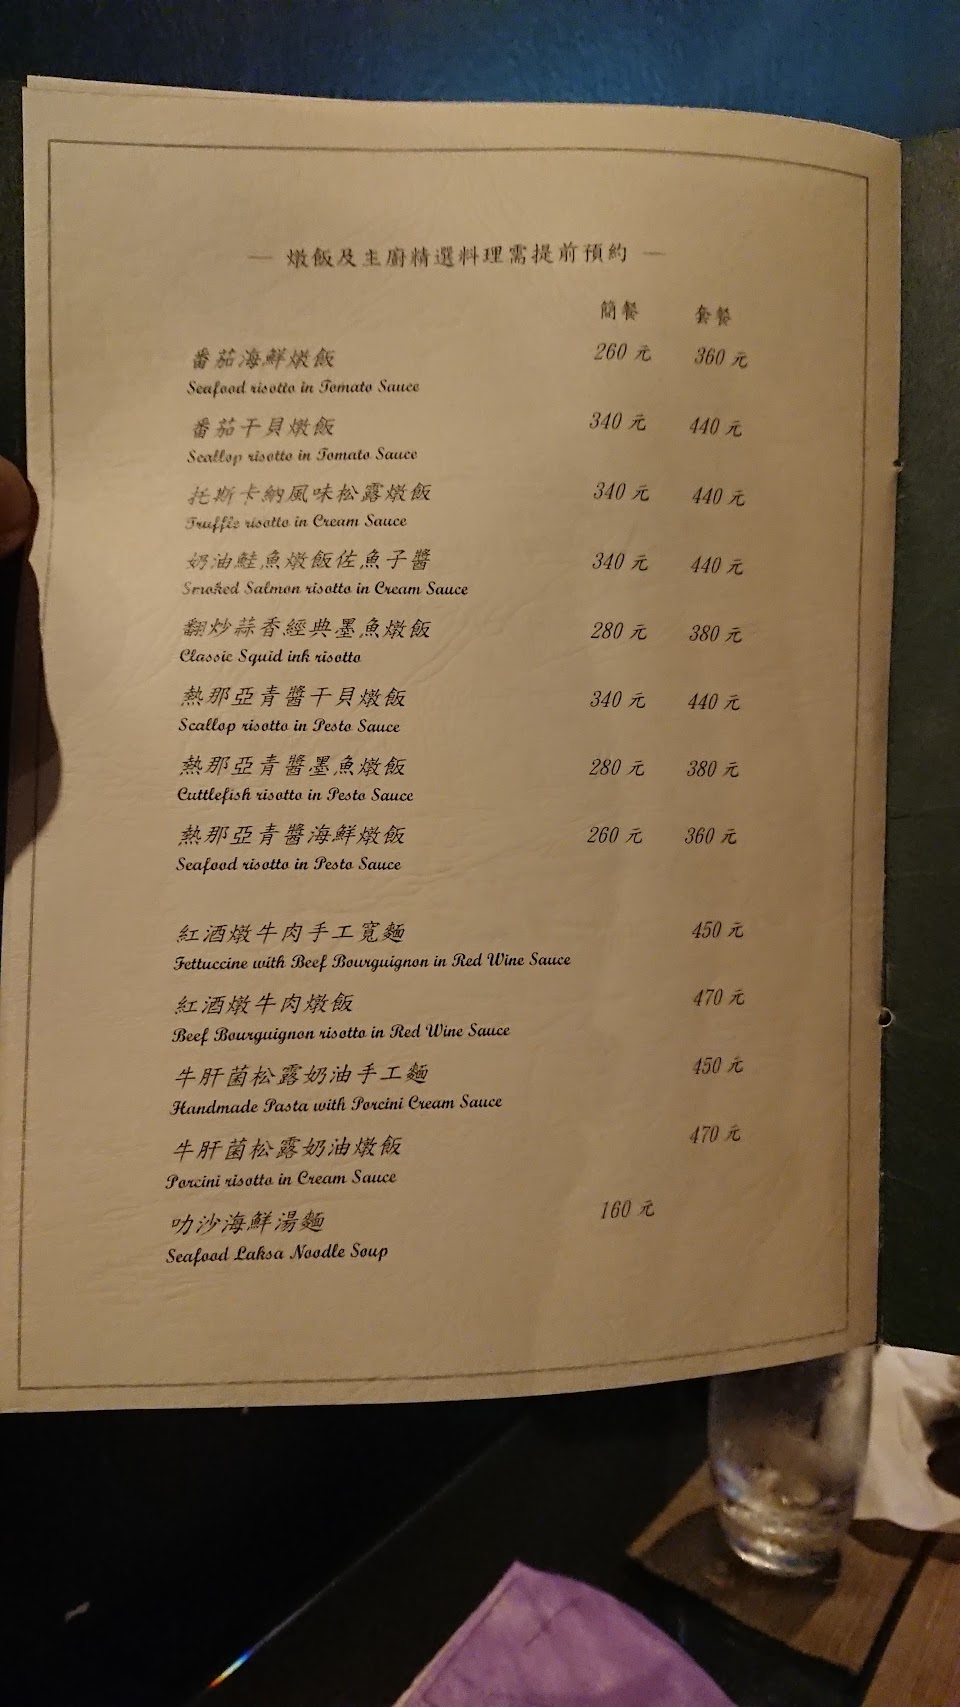 — 燉飯及主廚精選料理需提前預約 —
簡餐 套餐
番茄海鮮燉飯 260 元 360 元
Seafood risotto in Tomato Sauce
番茄干貝燉飯 340 元 440 元
Scallop risotto in Tomato Sauce
托斯卡納風味松露燉飯 340 元 440 元
Truffle risotto in Cream Sauce
奶油鮭魚燉飯佐魚子醬 340 元 440 元
Smoked Salmon risotto in Cream Sauce
翻炒蒜香經典墨魚燉飯 280 元 380 元
Classic Squid ink risotto
熱那亞青醬干貝燉飯 340 元 440 元
Scallop risotto in Pesto Sauce
熱那亞青醬墨魚燉飯 280 元 380 元
Cuttlefish risotto in Pesto Sauce
熱那亞青醬海鮮燉飯 260 元 360 元
Seafood risotto in Pesto Sauce
紅酒燉牛肉手工寬麵 450 元
Fettuccine with Beef Bourguignon in Red Wine Sauce
紅酒燉牛肉燉飯 470 元
Beef Bourguignon risotto in Red Wine Sauce
牛肝菌松露奶油手工麵 450 元
Handmade Pasta with Porcini Cream Sauce
牛肝菌松露奶油燉飯 470 元
Porcini risotto in Cream Sauce
叻沙海鮮湯麵 160 元
Seafood Laksa Noodle Soup